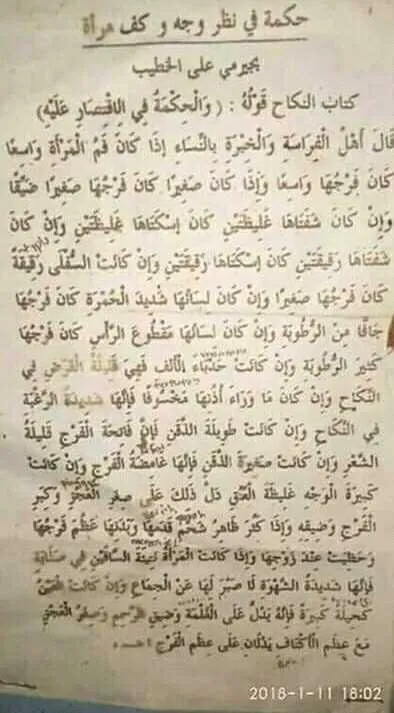 حكمة في نظر وجه و كف مرأة
بجيرمي على الخطيب
كتاب النكاح قَوْلُهُ : ( وَالْحِكْمَةُ فِي الِاقْتِصَارِ عَلَيْهِ)
قَالَ أَهْلُ الْفِرَاسَةِ وَالْخِبْرَةِ بِالنِّسَاءِ إذَا كَانَ فَمُ الْمَرْأَةِ وَاسِعًا
كَانَ فَرْجُهَا وَاسِعًا وَإِذَا كَانَ صَغِيرًا كَانَ فَرْجُهَا صَغِيرًا ضَيِّقًا
وَإِنْ كَانَ شَفَتَاهَا غَلِيظَتَيْنِ كَانَ إسْكَتَاهَا غَلِيظَتَيْنِ وَإِنْ كَانَ
شَفَتَاهَا رَقِيقَتَيْنِ كَانَ إسْكَتَاهَا رَقِيقَتَيْنِ وَإِنْ كَانَتْ السُّفْلَى رَقِيقَةً
كَانَ فَرْجُهَا صَغِيرًا وَإِنْ كَانَ لِسَانُهَا شَدِيدَ الْحُمْرَةِ كَانَ فَرْجُهَا
جَافًّا مِنْ الرُّطُوبَةِ وَإِنْ كَانَ لِسَانُهَا مَقْطُوعَ الرَّأْسِ كَانَ فَرْجُهَا
كَثِيرَ الرُّطُوبَةِ وَإِنْ كَانَتْ حَدْبَاءَ الْأَنْفِ فَهِيَ قَلِيلَةُ الْغَرَضِ فِي
النِّكَاحِ وَإِنْ كَانَ مَا وَرَاءَ أُذُنِهَا مَخْسُوفًا فَإِنَّهَا شَدِيدَةُ الرَّغْبَةِ
فِي النِّكَاحِ وَإِنْ كَانَتْ طَوِيلَةَ الذَّقَنِ فَإِنَّ فَاتِحَةَ الْفَرْجِ قَلِيلَةُ
الشَّعْرِ وَإِنْ كَانَتْ صَغِيرَةَ الذَّقَنِ فَإِنَّهَا غَامِضَةُ الْفَرْجِ وَإِنْ كَانَتْ
كَبِيرَةَ الْوَجْهِ غَلِيظَةَ الْعُنُقِ دَلَّ ذَلِكَ عَلَى صِغَرِ الْعَجُزِ وَكِبَرِ
الْفَرْجِ وَضِيقِهِ وَإِذَا كَثُرَ ظَاهِرُ شَحْمِ قَدَمَيْهَا وَبَدَنِهَا عَظُمَ فَرْجُهَا
وَحَظِيَتْ عِنْدَ زَوْجِهَا وَإِذَا كَانَتْ الْمَرْأَةُ نَاتِئَةَ السَّاقَيْنِ فِي صَلَابَةٍ
فَإِنَّهَا شَدِيدَةُ الشَّهْوَةِ لَا صَبْرَ لَهَا عَنْ الْجِمَاعِ وَإِنْ كَانَتْ الْعَيْنُ
كَحِيلَةً كَبِيرَةً فَإِنَّهُ يَدُلُّ عَلَى الْغُلْمَةِ وَضِيقِ الرَّحِمِ وَصِغَرُ الْعَجُزِ
مَعَ عِظَمِ الْأَكْتَافِ يَدُلَّانِ عَلَى عِظَمِ الْفَرْجِ
2018-1-11 18:02